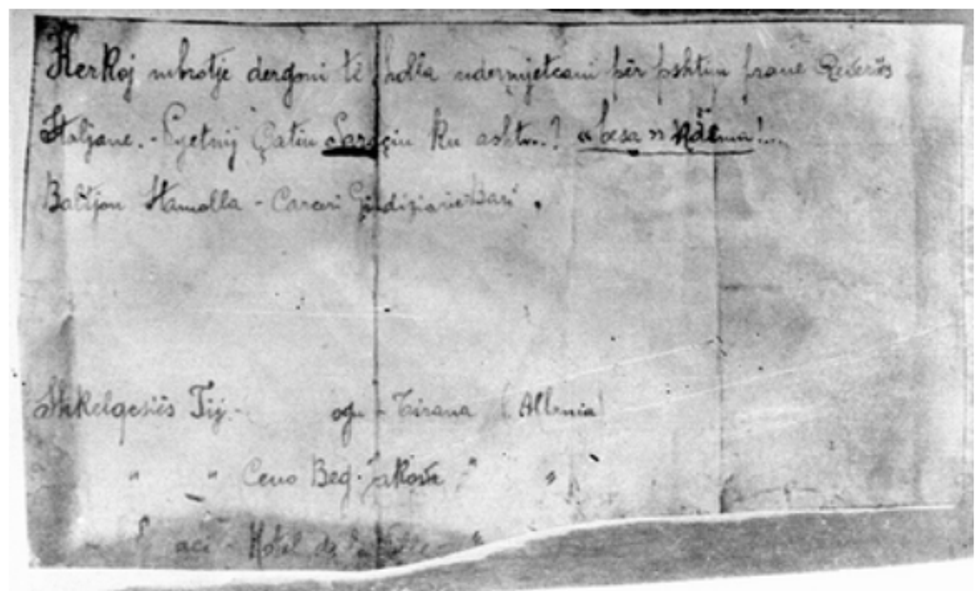 Kerkoj mbrotje dergoni të holla ndermjetsani për pshtim prane Qeveriës
Italjane. - Pyetnij Çatin Saraçin ku asht...? « besa » Ndëma!...
Baltjon Hamolla - Carceri Giudiziarie Bari.
Shkelqesiës Tij. ogu - Tirana (Albania)
" " Ceno Beg. Jakova " "
aci - Hotel de "